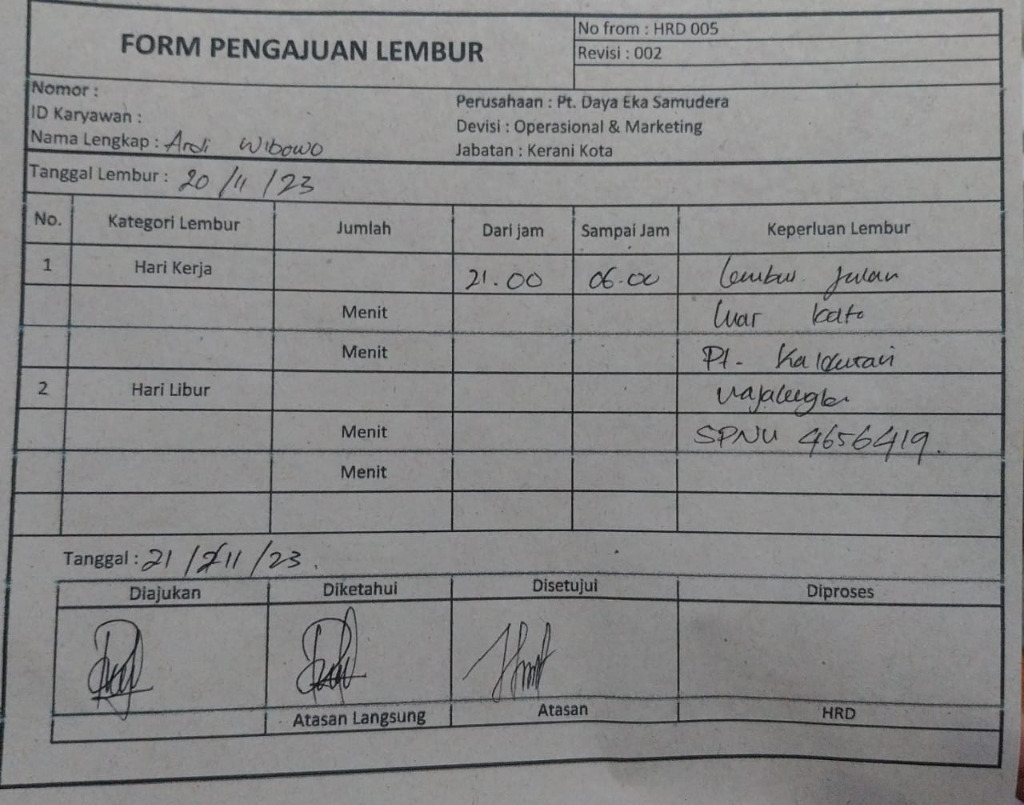 FORM PENGAJUAN LEMBUR
No from : HRD 005
Revisi : 002
Nomor :
ID Karyawan :
Nama Lengkap : Ardi Wibowo
Perusahaan : Pt. Daya Eka Samudera
Devisi : Operasional & Marketing
Jabatan : Kerani Kota
Tanggal Lembur : 20/11/23
No. Kategori Lembur Jumlah Dari jam Sampai Jam Keperluan Lembur
1 Hari Kerja 21.00 06.00 Lembur Jalan
Menit Luar kota
Menit Pt.
2 Hari Libur
Menit SPNU 4656419.
Menit
Tanggal : 21/11/23.
Diajukan Diketahui Disetujui Diproses
Atasan Langsung Atasan HRD